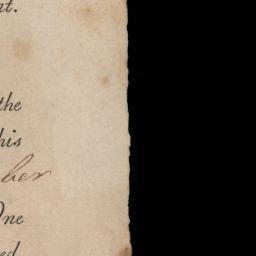 nt.
the
his
ber
One
ed